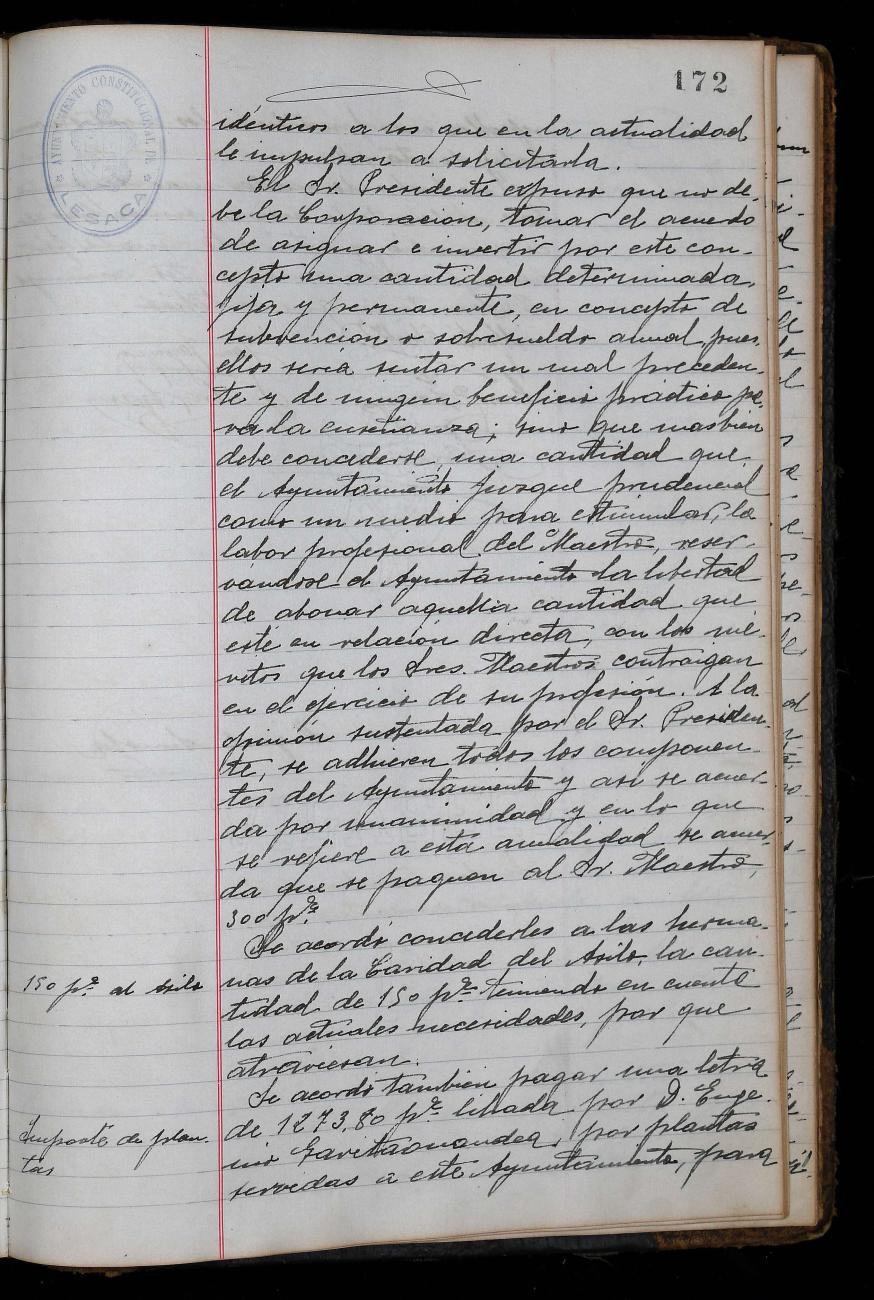 172
AYUNTAMIENTO CONSTITUCIONAL DE
LESACA
idénticos a los que en la actualidad
le impulsan a solicitarla.
El Sr. Presidente expuso que no de-
be la Corporación, tomar el acuerdo
de asignar e invertir por este con-
cepto una cantidad determinada,
fija y permanente, en concepto de
subvención o sobresueldo anual, pues,
ellos seria sentar un mal preceden-
te y de ningún beneficio práctico pa-
ra la enseñanza; sino que mas bien
debe concederse, una cantidad que
el Ayuntamiento juzgue prudencial
como un medio para estimular, la
labor profesional del Maestro, reser-
vandose el Ayuntamiento la libertad
de abonar aquella cantidad que
esté en relación directa, con los mé-
ritos que los Sres. Maestros contraigan
en el ejercicio de su profesión. A la
opinión sustentada por el Sr. Presiden-
te, se adhieren todos los componen-
tes del Ayuntamiento y asi se acuer-
da por unanimidad y en lo que
se refiere a esta anualidad se acuer-
da que se paguen al Sr. Maestro,
300 pts.
Se acordó concederles a las herma-
nas de la Caridad del Asilo, la can-
150 pts. al Asilo
tidad de 150 pts. teniendo en cuenta
las actuales necesidades, por que
atraviesan.
Se acordó tambien pagar una letra
de 1273,80 pts. librada por D. Euge-
Importe de plan-
tas
nio Garitaonandea, por plantas
servidas a este Ayuntamiento, para